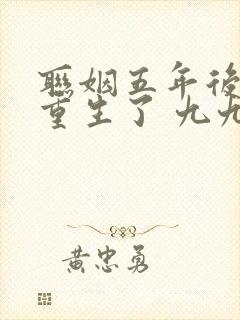 聯姻五年後
重生了 九九
黃忠勇